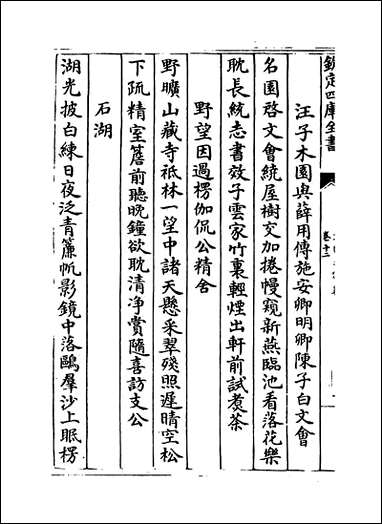 欽定四庫全書
汪子木園與薛用傅施安卿明卿陳子白文會
名園啓文會統屋樹交加捲幔窺新燕臨池看落花樂
耽長統志書效子雲家竹裏輕煙出軒前試煮茶
野望因過楞伽侃公精舍
野曠山藏寺祇林一望中諸天懸采翠殘照遲晴空松
下疏精室簷前聽晚鐘欲耽清净賞隨喜訪支公
石湖
湖光披白練日夜泛青簾帆影鏡中落鷗羣沙上眠楞